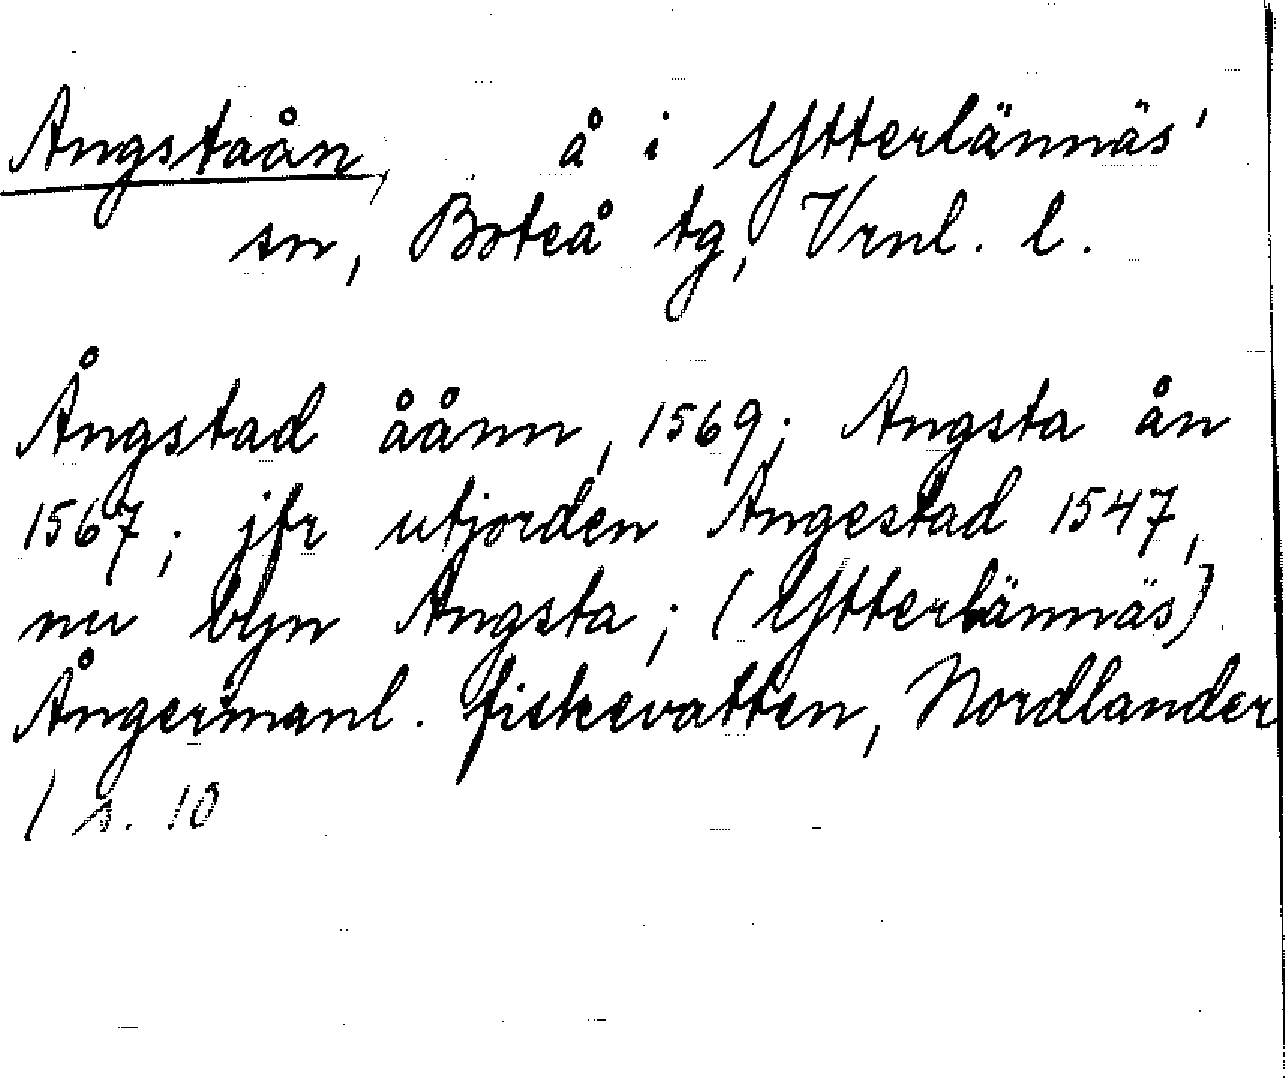 Angstaån, å i Ytterlännäs'
sn, Boteå tg, Vrnl. l.
Ångstad åånn, 1569; Angsta ån
1567; jfr utjorden Angestad 1547,
nu byn Angsta; (Ytterlännäs)
Ångermanl. fiskevatten, Nordlander
/ s. 10